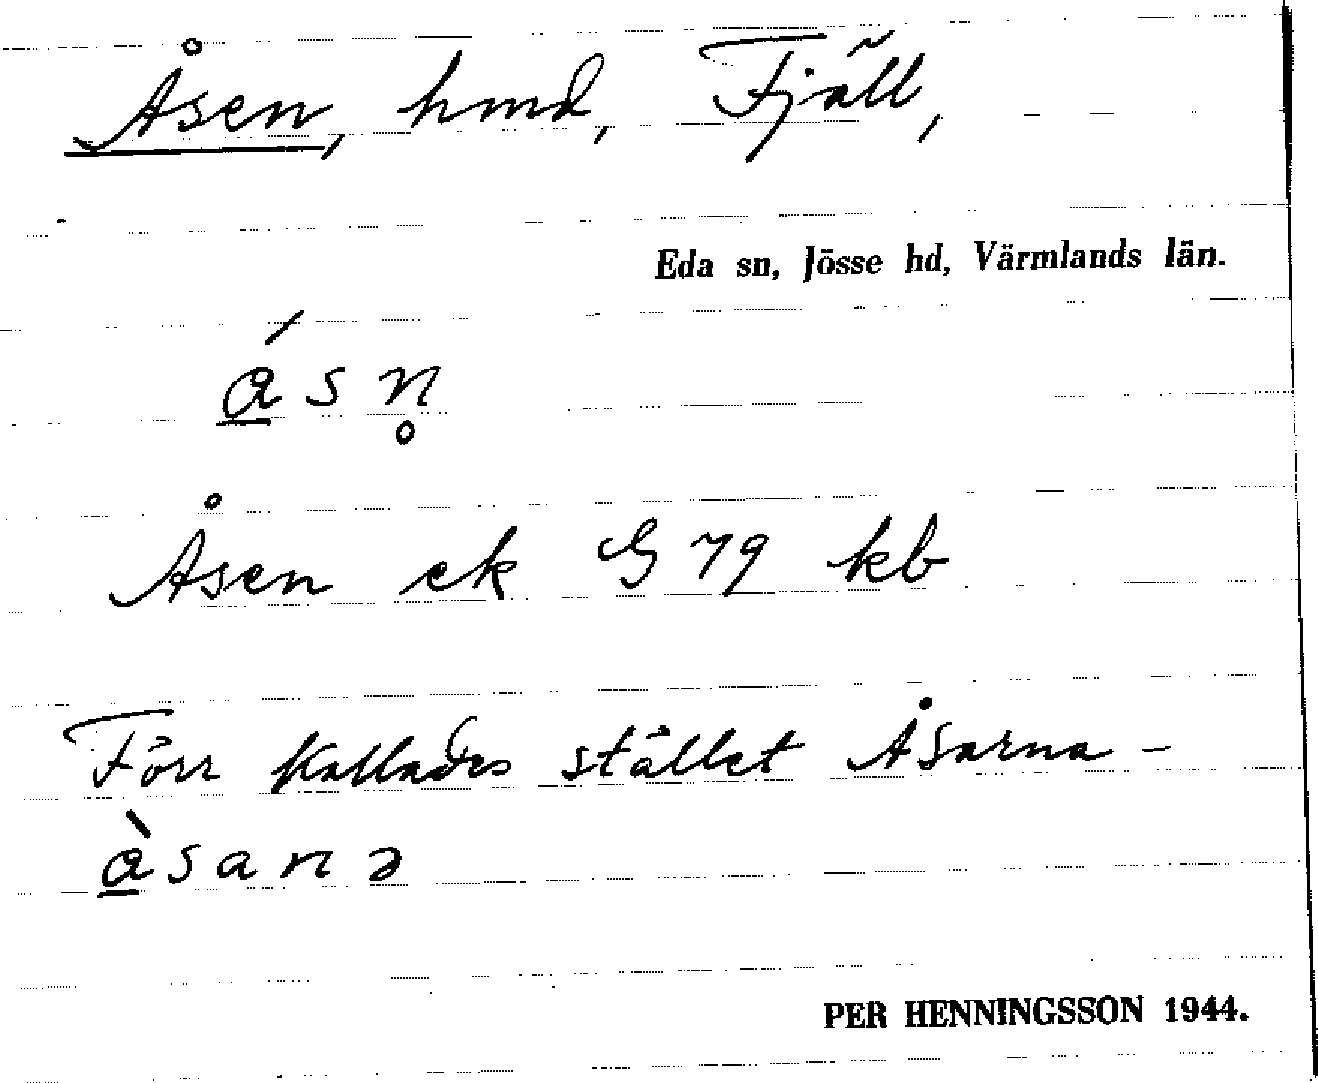 Åsen, hmd, Fjäll,
Eda sn, Jösse hd, Värmlands län.
á̲ s n̥
Åsen ek G 79 kb
Förr kallades stället Åsarna –
à̲ s a n ə
PER HENNINGSSON 1944.